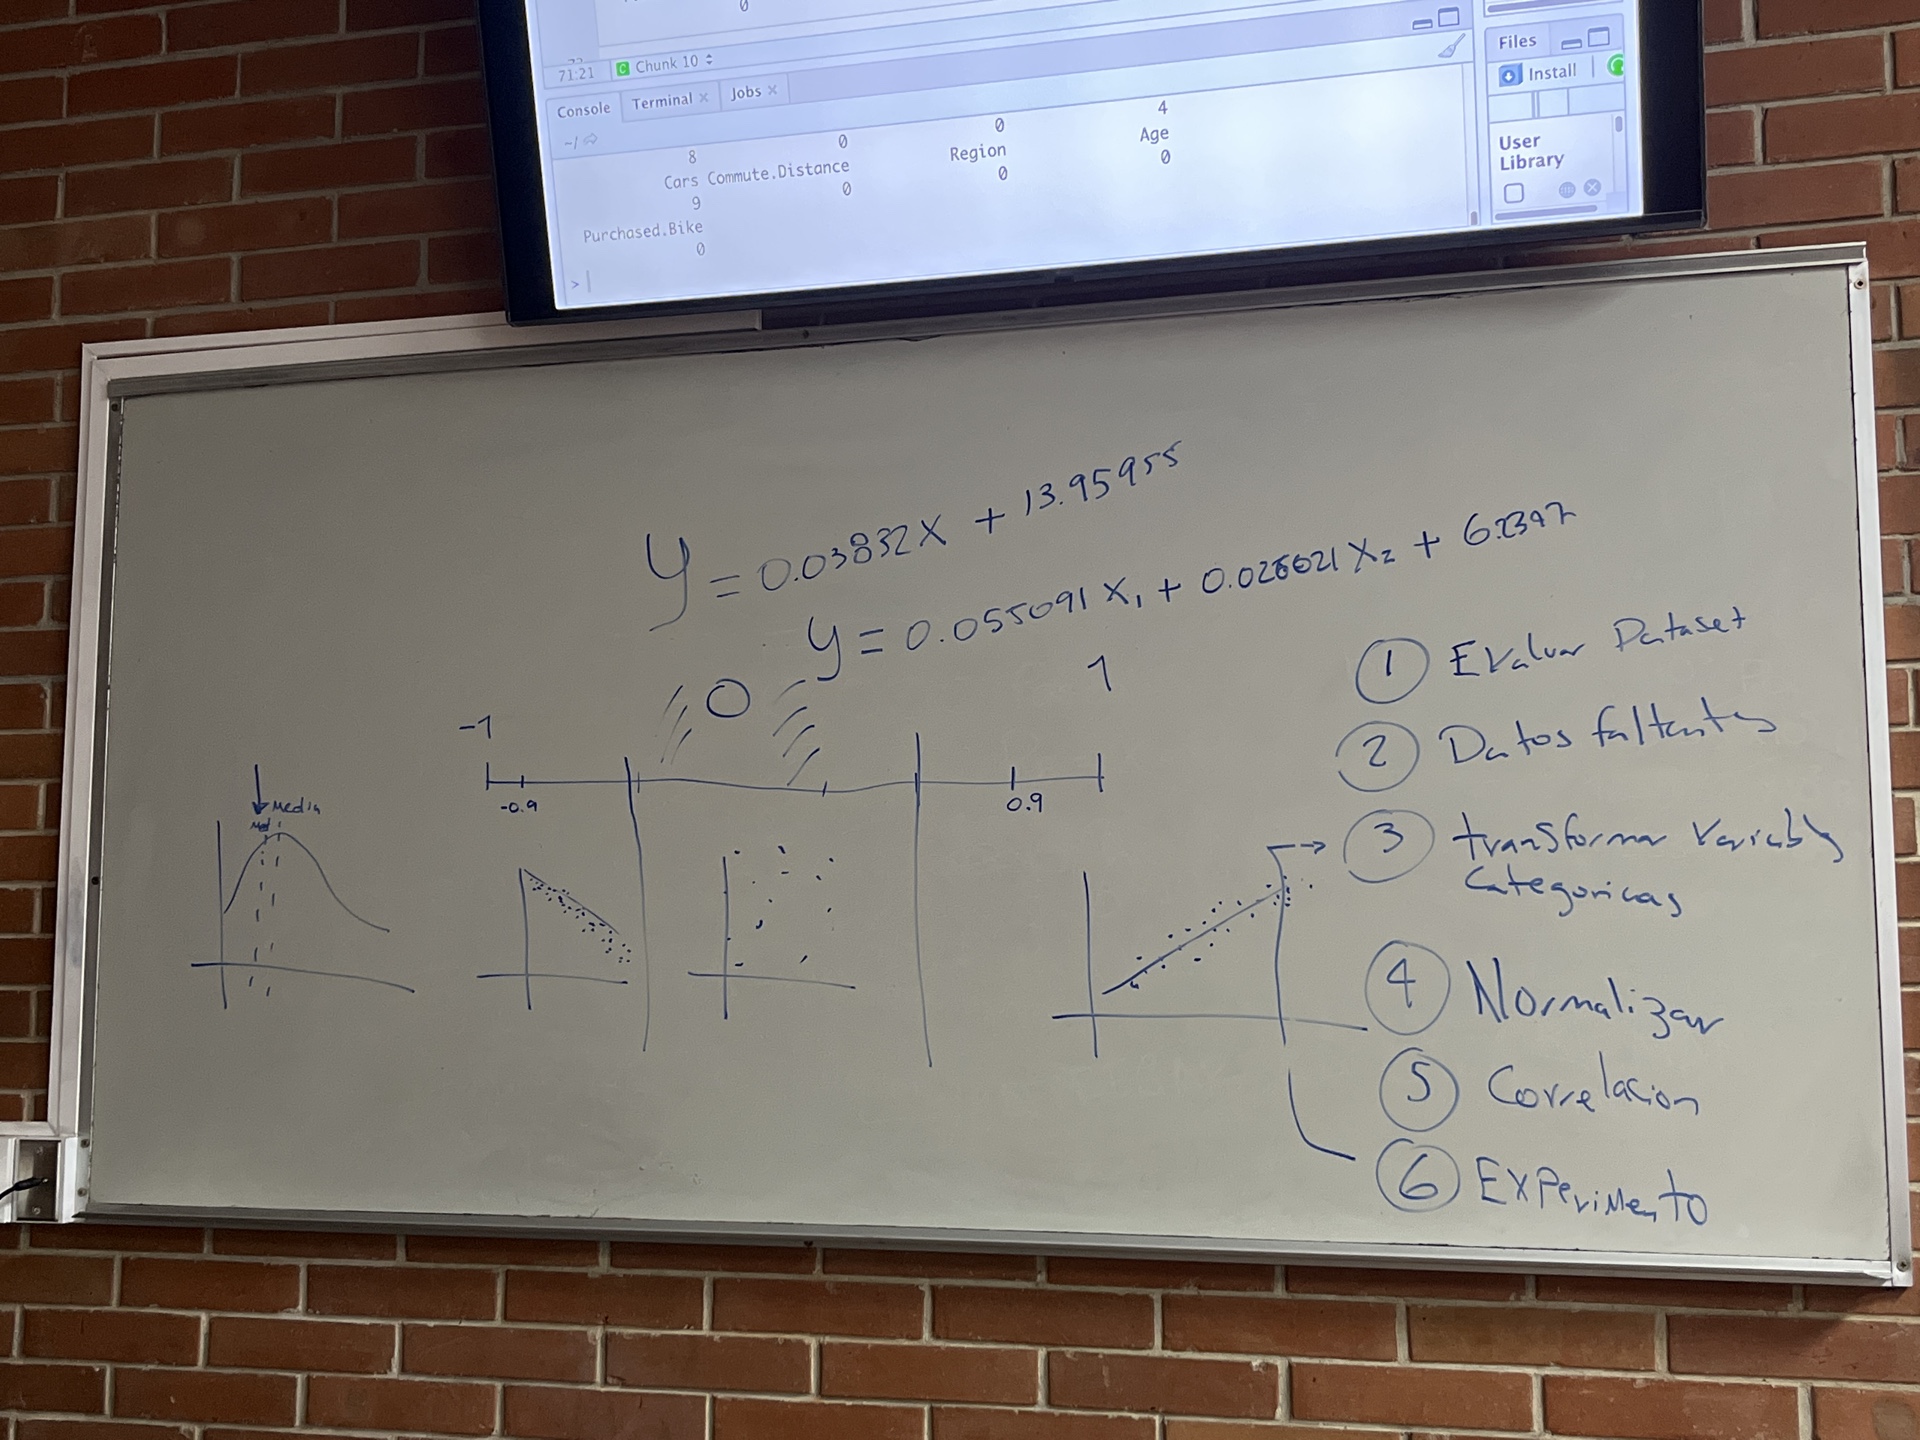 0
71:21 C Chunk 10
Files
Console Terminal × Jobs ×
Install
~/
8 0 0 4
Cars Commute.Distance Region Age
9 0 0 0
Purchased.Bike
0
>
User
Library
y = 0.03832X + 13.95955
y = 0.055091 X₁ + 0.026621 X₂ +
-1 0 1
-0.9 0.9
Media
1 Evaluar Dataset
2 Datos faltantes
3 transformar Variables
Categoricas
4 Normalizar
5 Correlacion
6 EXPeriMento